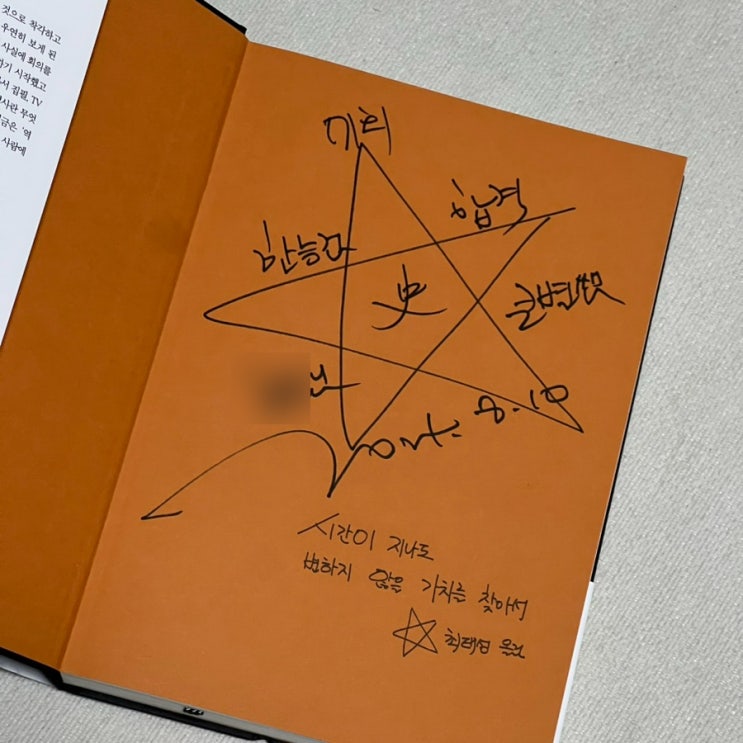 것으로 착각하고
우연히 보게 된
사실에 회의를
하기 시작했고
서 집필, TV
무엇
금은 '역
사람에
합격
한능검
史
큰별쌤
8.10
시간이 지나도
변하지 않을 가치를 찾아서
최태성 올림